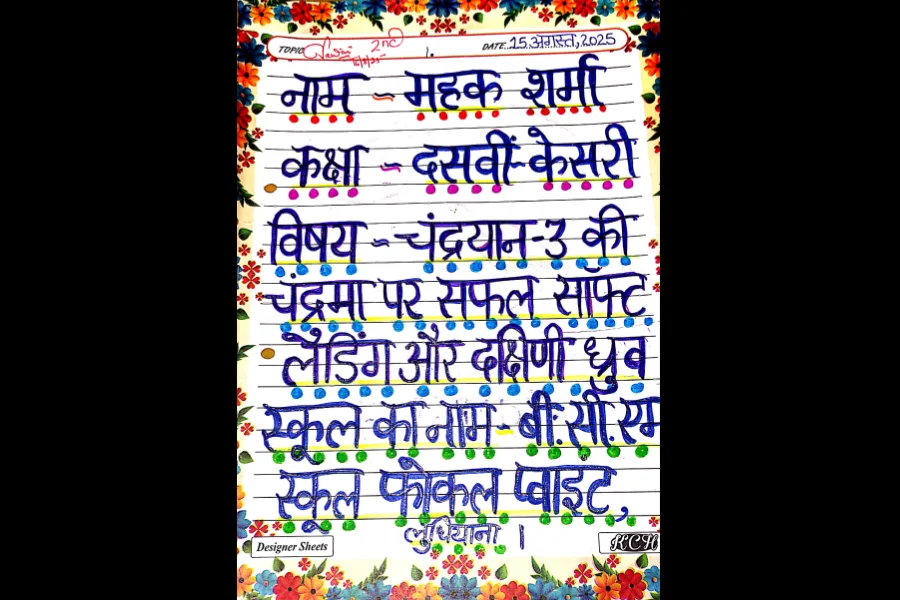 TOPIC 2nd 1. DATE 15 अगस्त, 2025
नाम - महक शर्मा
कक्षा - दसवीं-केसरी
विषय - चंद्रयान-3 की
चंद्रमा पर सफल सॉफ्ट
लैंडिंग और दक्षिणी ध्रुव
स्कूल का नाम - बी.सी.एम
स्कूल फोकल प्वाइट,
लुधियाना ।
Designer Sheets